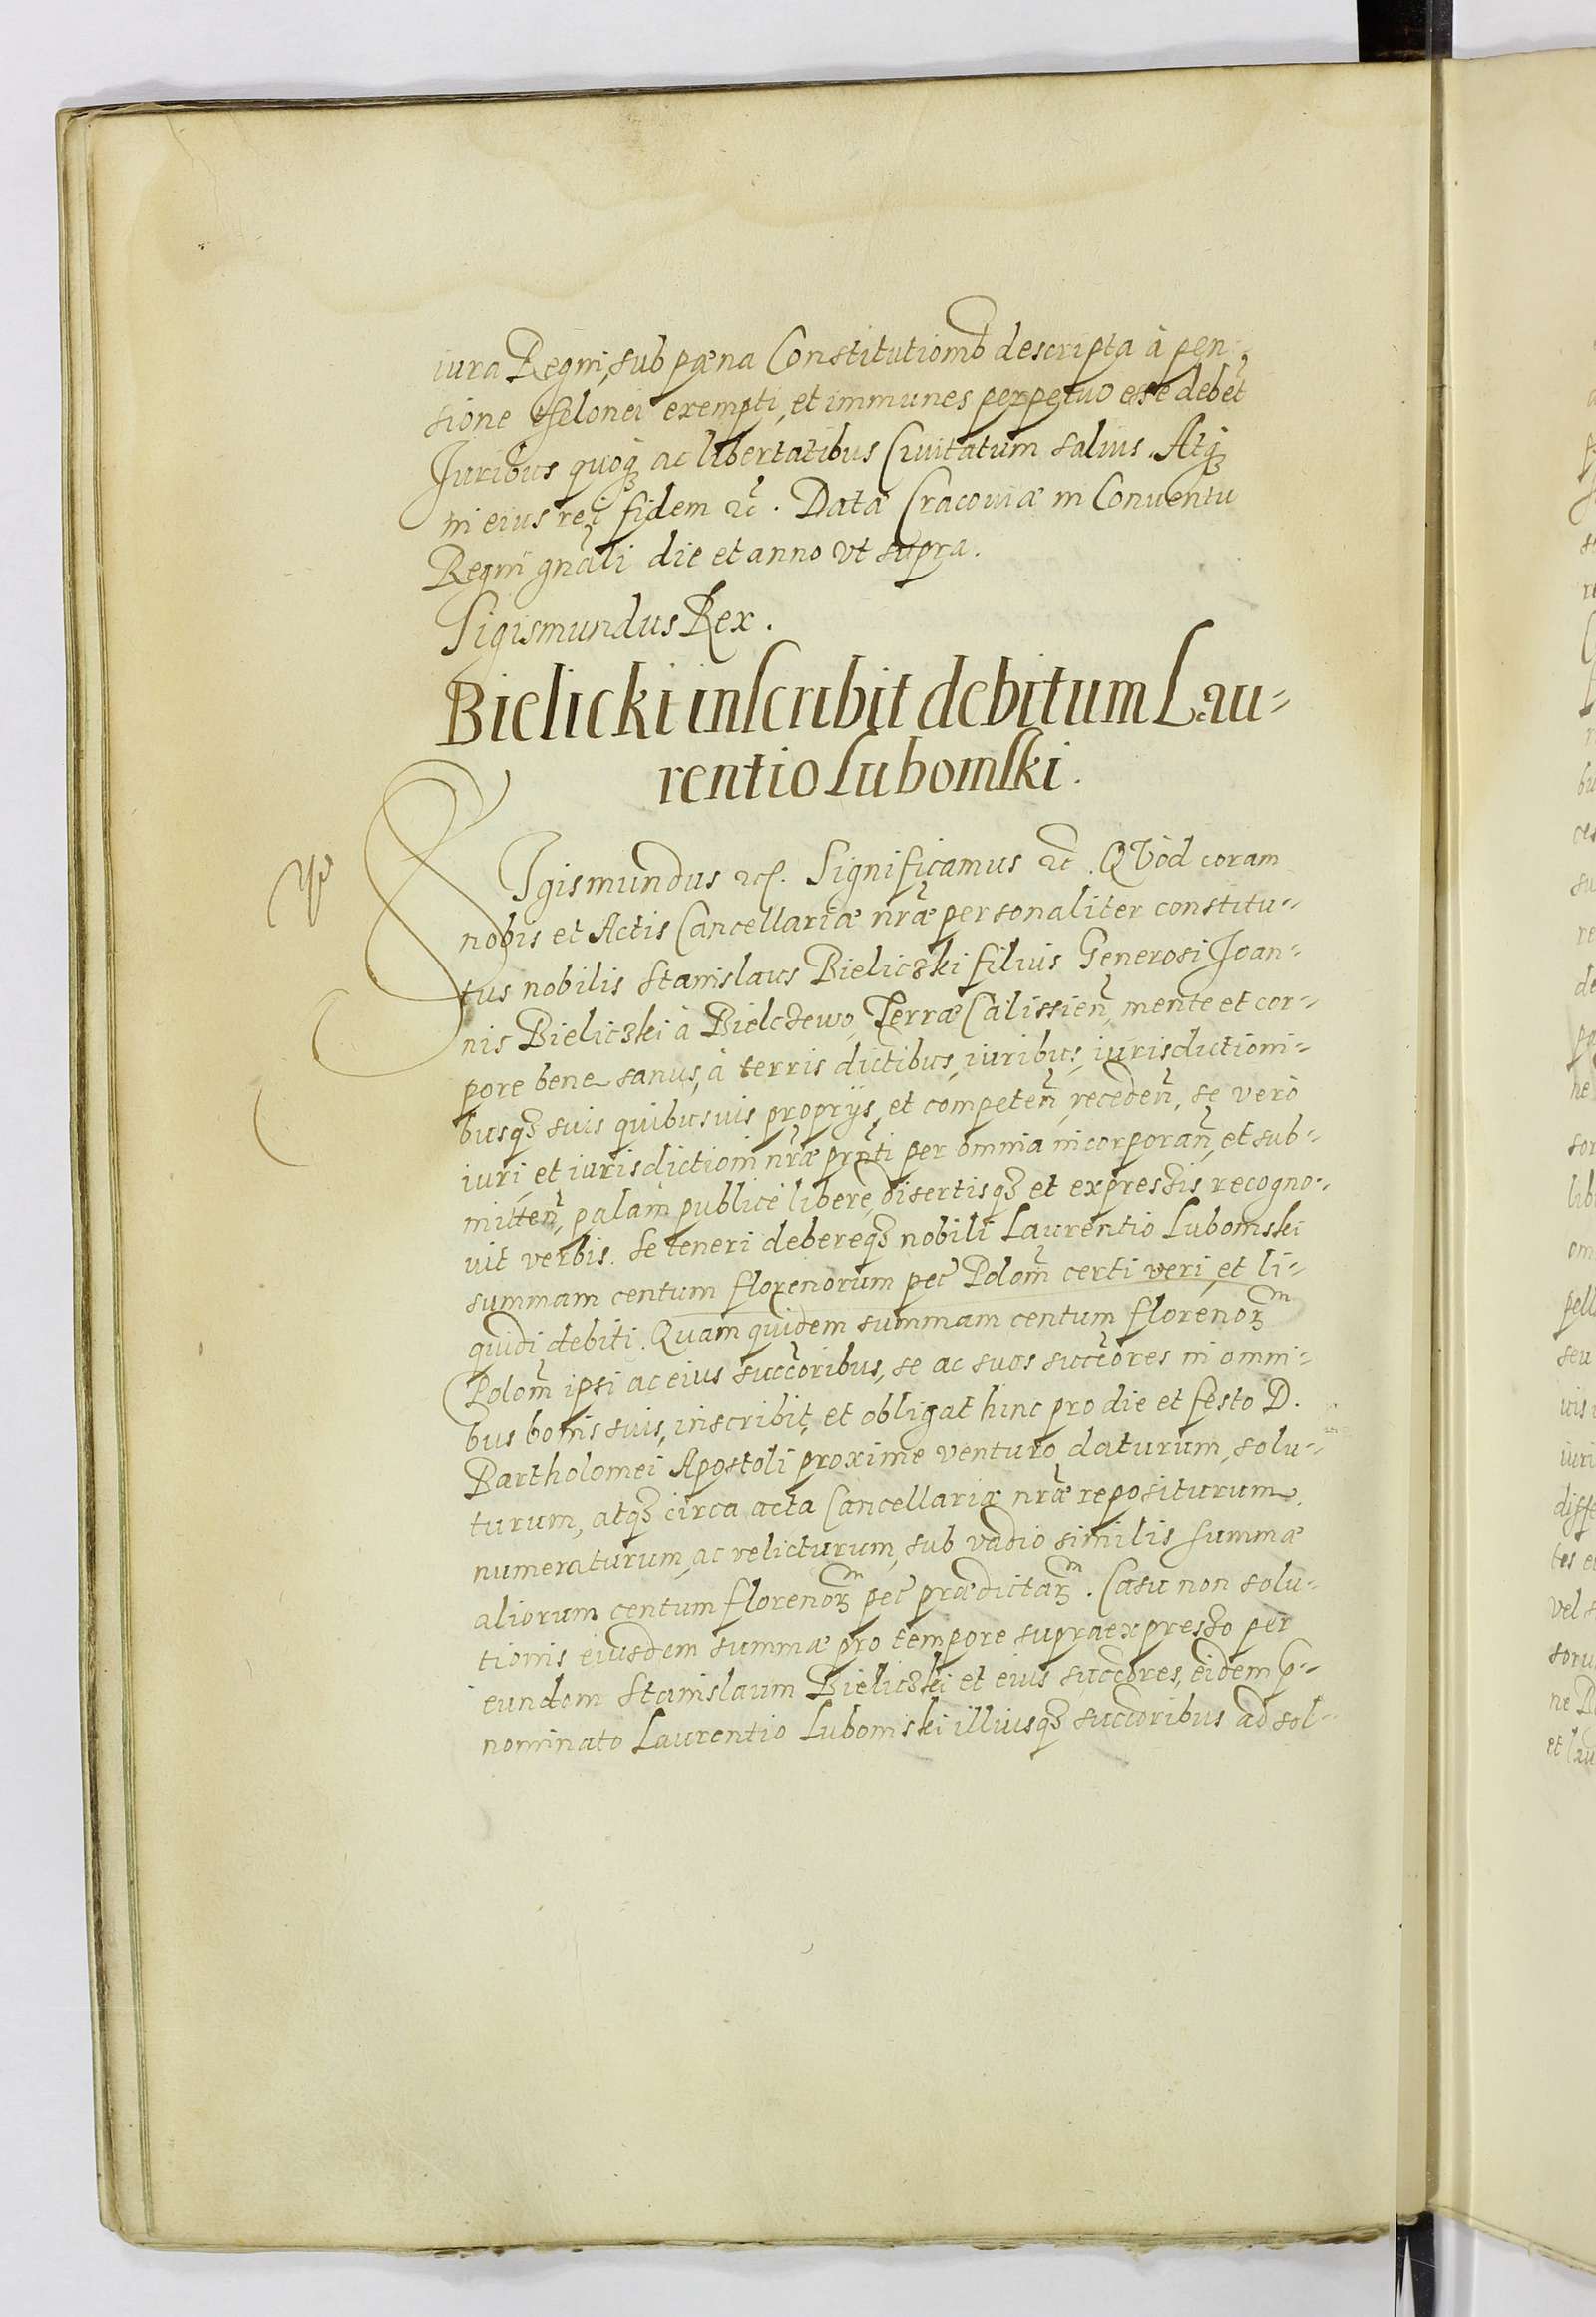 iura Regni, sub pœna Constitutionib descripta à pen-
sione thelonei exempti, et immunes perpetuo esse debet
Juribus quoq ac libertatibus Civitatum salvis. Atq
in eius rei fidem etc. Data Cracoviæ in Conventu
Regni gnāli die et anno vt supra.
Sigismundus Rex.
Bielicki inscribit debitum Lau-
rentio Lubomski.
SIgismundus etc. Significamus etc. QVòd coram
nobis et Actis Cancellariæ nr̄æ personaliter constitu-
tus nobilis Stanislaus Bieliczki filius Generosi Joan-
nis Bieliczki à Bielczewo, Terræ Calissien, mente et cor-
pore bene sanus, à terris dictibus, iuribus, iurisdictioni-
busq suis quibusuis proprijs, et competen, receden, se verò
iuri, et iurisdictioni nr̄æ prn̄ti per omnia incorporan, et sub-
mitten, palam publicè liberè, disertisq et expressis recogno-
uit verbis. Se teneri debereq nobili Laurentio Lubomski
summam centum florenorum pec Polom certi veri, et li-
quidi debiti. Quam quidem summam centum florenorm
Polom ipsi ac eius succoribus, se ac suos succores in omni-
bus bonis suis, inscribit, et obligat hinc pro die et festo D.
Bartholomei Apostoli proxime venturo, daturum, solu-
turum, atq circa acta Cancellariæ nr̄æ repositurum,
numeraturum, ac relicturum, sub vadio similis summæ
aliorum centum florenorm pec prædictarm. Casu non solu-
tionis eiusdem summæ pro tempore supraexpresso per
eundem Stanislaum Bieliczki et eius succores, eidem p-
nominato Laurentio Lubomski illiusq succoribus ad sol-